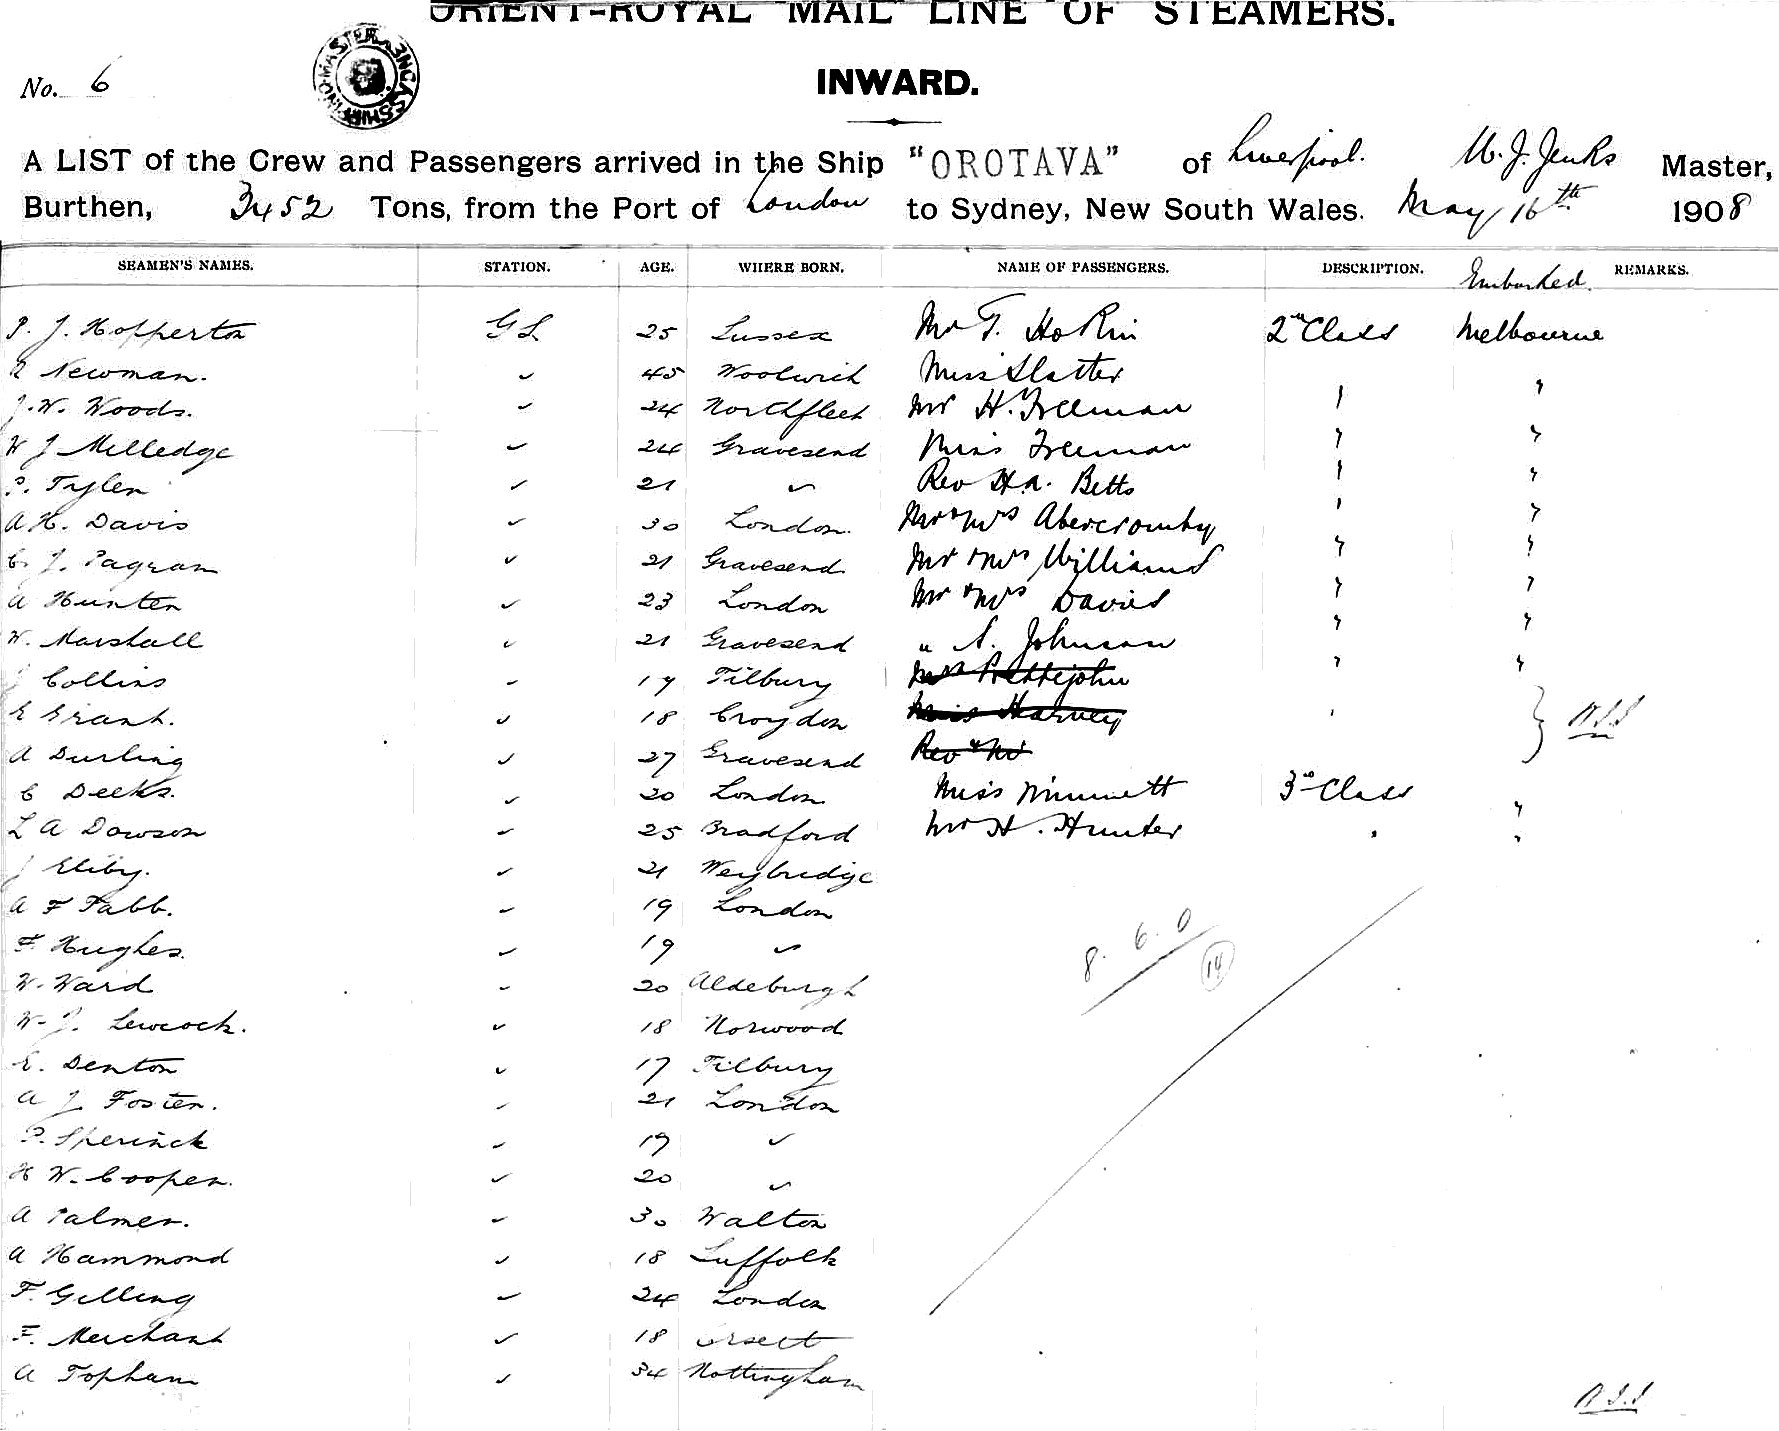 ORIENT-ROYAL MAIL LINE OF STEAMERS.
No. 6
INWARD.
A LIST of the Crew and Passengers arrived in the Ship "OROTAVA" of Liverpool. Master,
Burthen, 3452 Tons, from the Port of London to Sydney, New South Wales. May 16th 1908
SEAMEN'S NAMES. STATION. AGE. WHERE BORN. NAME OF PASSENGERS. DESCRIPTION. Embarked. REMARKS.
P. J. Hopperton GS 25 Sussex Mr T. Hokin 2nd Class Melbourne
Newman. " 45 Woolwich Miss Slatter " "
J. W. Woods. " 24 Northfleet Mr H. Freeman " "
W J Milledge " 24 Gravesend Miss Freeman " "
P. Tyler " 21 " Rev H.A. Betts " "
A H. Davis " 30 London. Mr & Mrs Abercromby " "
C. J. Pagram " 21 Gravesend Mr & Mrs Williams " "
A Hunter " 23 London Mr & Mrs Davies " "
W. Marshall " 21 Gravesend " A. Johnson " "
J Collins " 19 Tilbury Prettijohn
E Grant. " 18 Croydon Miss Harvey
A Durling " 27 Gravesend Rev & Mr
C Deeks. " 20 London Miss Nimmett 3rd Class "
L A Dowson " 25 Bradford Mr H. Hunter " "
J Eliby. " 21 Weybridge
A F Tabb. " 19 London
F. Hughes. " 19 "
W. Ward " 20 Aldeburgh
W. J. Lewcock. " 18 Norwood
E. Denton " 17 Tilbury
A J Foster. " 21 London
P. Sperinck " 19 "
H W. Cooper. " 20 "
A Palmer. " 30 Walton
A Hammond " 18 Suffolk
F. Gilling " 24 London
F. Merchant " 18 Orsett
A Topham " 34 Nottingham
8. 6. 0
14